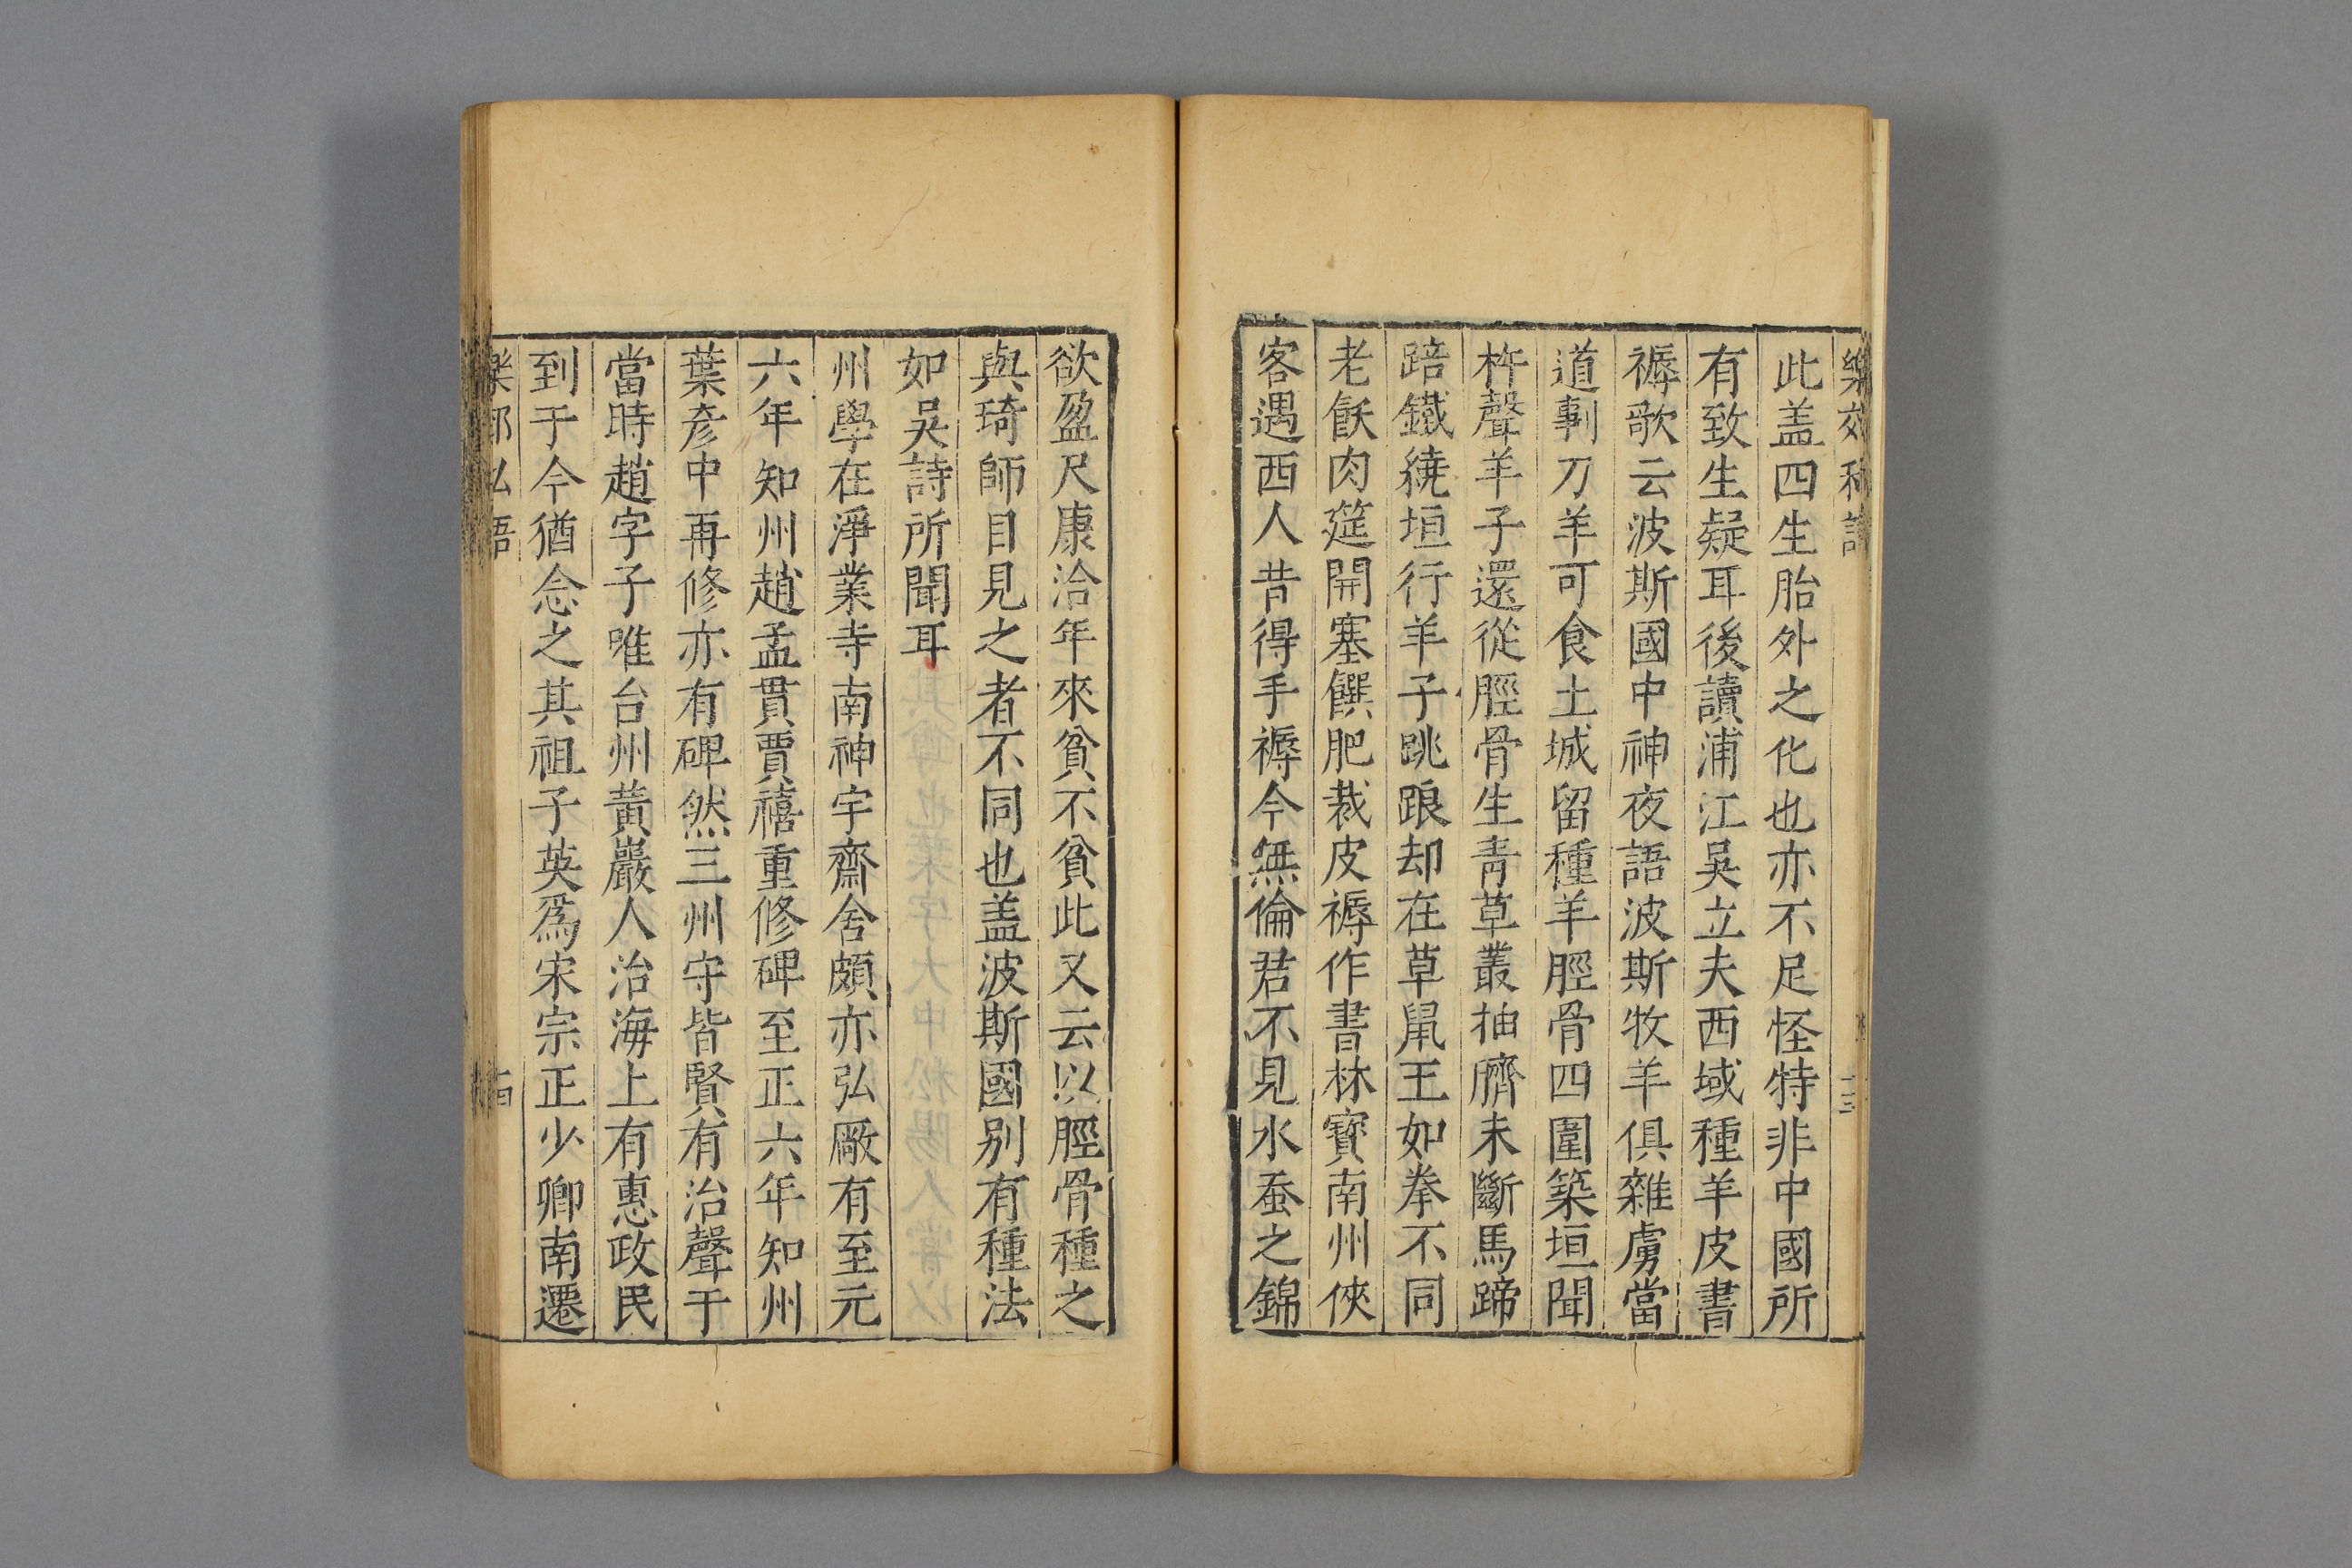 樂郊私語
十三
此盖四生胎外之化也亦不足怪特非中國所
有致生疑耳後讀浦江吳立夫西域種羊皮書
褥歌云波斯國中神夜語波斯牧羊俱雜虜當
道剚刀羊可食土城留種羊脛骨四圍築垣聞
杵聲羊子還從脛骨生青草叢抽臍未斷馬蹄
踣鐵繞垣行羊子跳踉却在草鼠王如拳不同
老飫肉筵開塞饌肥裁皮褥作書林寳南州俠
客遇西人昔得手褥今無倫君不見氷蚕之錦
欲盈尺康洽年來貧不貧此又云以脛骨種之
與琦師目見之者不同也盖波斯國别有種法
如吳詩所聞耳
州學在淨業寺南神宇齋舍頗亦弘厰有至元
六年知州趙孟貫賈禧重修碑至正六年知州
葉彥中再修亦有碑然三州守皆賢有治聲于
當時趙字子唯台州黃巖人治海上有惠政民
到于今猶念之其祖子英爲宋宗正少卿南遷